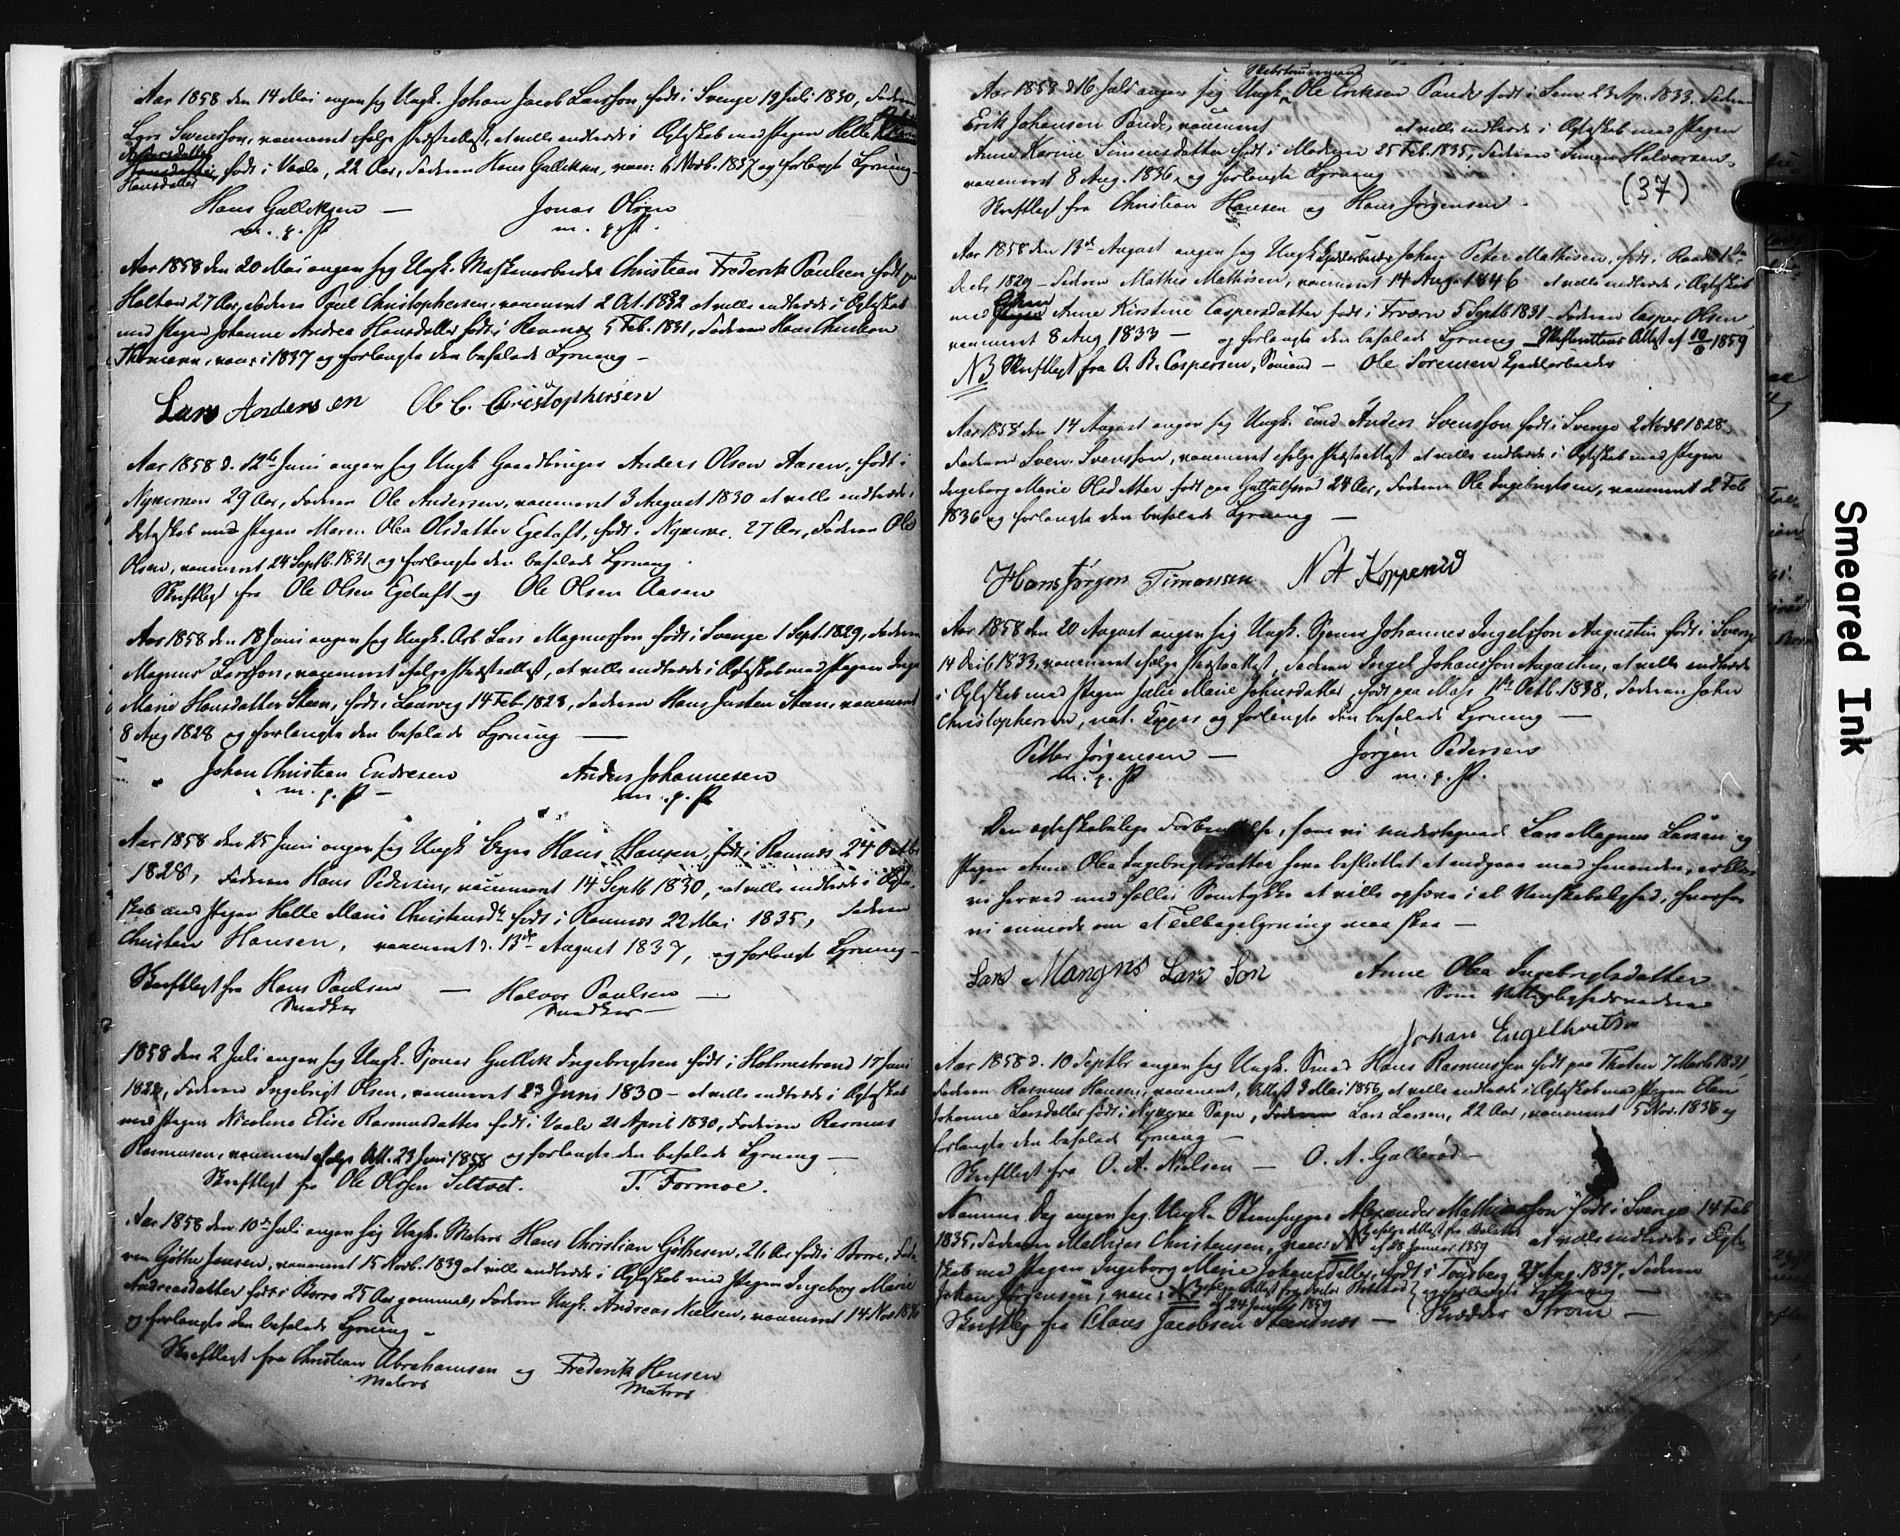 Aar 1858 den 14 Mai angav sig Ungk. Johan Jacob Larsson født i Sverige 19 Juli 1830, Faderen
Lars Swensson, vaccineret ifølge Præsteattest, at ville indtræde i Ægteskab med Pigen Helle
Hansdatter, født i Vaale, 22 Aar, Faderen Hans Gulliksen, vacc: 6 Novb. 1837 og forlangte Lysning
Hans Gulliksen — Jonas Olsen
m. p. P. m. p. P.
Aar 1858 den 20 Mai angav sig Ungk. Maskinarbeider Christian Frederik Paulsen, født paa
Holtan 27 Aar, Faderen Poul Christophersen, vaccineret 2 Oct. 1832 at ville indtræde i Ægteskab
med Pigen Johanne Andrea Hansdatter født i Ramnæs 5 Feb. 1831, Faderen Hans Christian
Thomesen, vacc: i 1837 og forlangte den befalede Lysning —
Lars Andersen Ole C. Christophersen
Aar 1858 d. 12te Juni angav sig Ungk. Gaardbruger Anders Olsen Aasen, født i
Nykirken 29 Aar, Faderen Ole Andersen, vaccineret 3 August 1830 at ville indtræde i
Ægteskab med Pigen Maren Olea Olsdatter Egetuft, født i Nykirke, 27 Aar, Faderen Ole
Olsen, vaccineret 24 Septb. 1831 og forlangte den befalede Lysning.
Skriftligt fra Ole Olsen Egetuft og Ole Olsen Aasen
Aar 1858 den 18 Juni angav sig Ungk. Arb. Lars Magnusson født i Sverige 1 Sept. 1829, Faderen
Magnus Larsson, vaccineret ifølge Præsteattest, at ville indtræde i Ægteskab med Pigen Inger
Marie Hansdatter Steen, født i Laurvig 14 Feb. 1828, Faderen Hans Justen Steen, vaccineret
8 Aug 1828 og forlangte den befalede Lysning —
Johan Christian Endresen Anders Johannesen
m. p. P — m. p. P.
Aar 1858 den 25 Juni angav sig Ungk. Hans Hansen, født i Ramnæs 24 Octbr
1828, Faderen Hans Pedersen, vaccineret 14 Septb 1830, at ville indtræde i Ægte-
skab med Pigen Helle Marie Christensdtr. født i Ramnæs 22 Mai 1835, Faderen
Christen Hansen, vaccineret d. 13de August 1837, og forlangte Lysning —
Skriftligt fra Hans Paulsen — Halvor Paulsen —
Snedker Snedker —
1858 den 2 Juli angav sig Ungk. Sjømd Gullik Ingebrigtsen født i Holmestrand 17 Juni
1828, Faderen Ingebrigt Olsen, vaccineret 23 Juni 1830 — at ville indtræde i Ægteskab
med Pigen Nicoline Elise Rasmusdatter født i Vaale 21 April 1830, Faderen Rasmus
Rasmusen, vaccineret ifølge Att. 23 Juni 1858 og forlangte den befalede Lysning —
Skriftligt fra Ole Olsen Siltvet. T. Formoe.
Aar 1858 den 10de Juli angav sig Ungk. Matros Hans Christian Gøthesen, 26 Aar født i Borre, Fade-
ren Gøthe Jensen, vaccineret 15 Novb. 1839 at ville indtræde i Ægteskab med Pigen Ingeborg Marie
Andreasdatter født i Borre 25 Aar gammel, Faderen Ungk. Andreas Nielsen, vaccineret 14 Nov.
og forlangte den befalede Lysning —
Skriftligt fra Christian Abrahamsen og Frederik Hansen
Matros Matros
Skibstømmermand
Aar 1858 d. 16 Juli angav sig Ungk. Ole Erikson født i Sem 23 Ap. 1833. Faderen
Erik Johansen, vaccineret at ville indtræde i Ægteskab med Pigen
Anne Karine Simensdatter født i Modum 25 Feb. 1835, Faderen Simen Halvorsen,
vaccineret 8 Aug. 1836, og forlangte Lysning
Skriftligt fra Christian Hansen og Hans Jørgensen.
(37)
Aar 1858 den 13de August angav sig Ungk. Johan Peter Mathisen, født i 1ste
Decb. 1829 — Faderen Mathis Mathisen, vaccineret 14 Aug. 1846 at ville indtræde i Ægteskab
med Enken Anne Kirstine Caspersdatter født i Froern 5 Septb 1831 — Faderen Casper Olsen,
vaccineret 8 Aug 1833 — og forlangte den befalede Lysning Skifterettens Attest af 10/6 1859
NB Skriftligt fra O. B. Caspersen, Sømand — Ole Sørensen
Aar 1858 den 14 August angav sig Ungk. Anders Svensson født i Sverige 2 Novb 1828,
Faderen Sven Svensson, vaccineret ifølge Præsteattest at ville indtræde i Ægteskab med Pigen
Ingeborg Marie Olsdatter født paa 24 Aar, Faderen Ole Ingebrigtsen, vaccineret 2 Feb
1836 og forlangte den befalede Lysning —
Hans Jørgen Timansen N A Koppervid
Aar 1858 den 20 August angav sig Ungk. Sjømd Johannes Ingelsson Augustin født i Sverige
14 Decb 1833, vaccineret ifølge Præsteattest, Faderen Ingel Johansson Augustin, at ville indtræde
i Ægteskab med Pigen Julie Marie Johnsdatter, født paa Moss 11te Octb. 1838, Faderen John
Christophersen, nat. Kopper og forlangte den befalede Lysning —
Petter Jørgensen — Jørgen Pedersen
m. p. P m. p. P.
Den ægteskabelige Forbindelse, som vi undertegnede Lars Magnus Larsen og
Pigen Anne Olea Ingebrigtsdatter have besluttet at indgaae med hinanden, erklære
vi herved med fælles Samtykke at ville ophæve i al Venskabelighed, hvorfor
vi anmode om at Tilbagelysning maa skee —
Lars Mangns Lars Son Anne Olea Ingebrigtsdatter
Som Vitterlighedsvidne
Johan Engelhvitsn
Aar 1858 d. 10 Septbr angav sig Ungk. Smed Hans Rasmussen født paa Thoten 7 Marts 1831,
Faderen Rasmus Hansen, vaccineret, Attest 3 Mai 1856, at ville indtræde i Ægteskab med Pigen Elen
Johanne Larsdatter født i Nykirke Sogn, Faderen Lars Larsen, 22 Aar, vaccineret 5 Nov. 1838 og
forlangte den befalede Lysning —
Skriftligt fra O. A. Nielsen — O. A. Gallerød —
Samme Dag angav sig Ungk. Steenhugger Alexander Mathiasson født i Sverige 14 Feb
1835, Faderen Mathias Christensen, vacc: ifølge Attest fra af 28 Januar 1859 at ville indtræde i Ægte-
skab med Pigen Ingeborg Marie Johansdatter, født i Tønsberg 27 Aug. 1837, Faderen
Johan Jørgensen, vacc: ifølge Attest fra Doctor af 24 Januar 1859 og forlangte Lysning —
Skriftlig fra Claus Jacobsen — Skrædder Strøm —
Smeared Ink